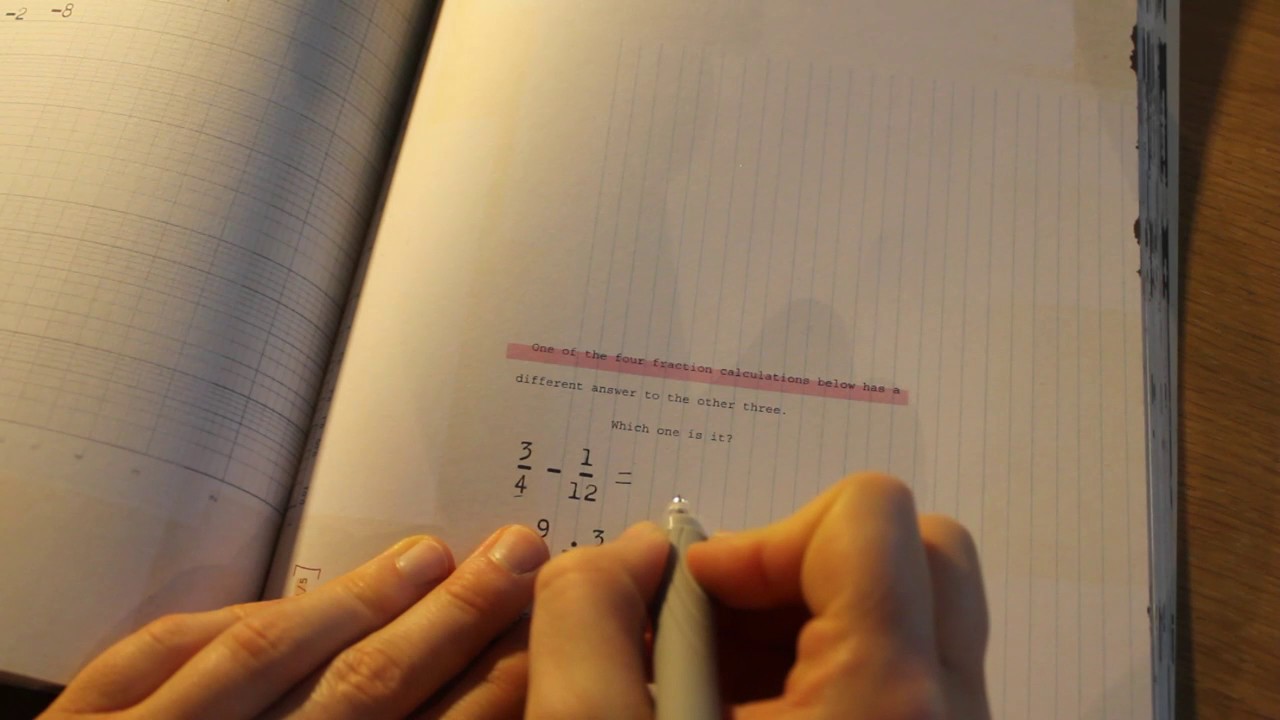 -2 -8
One of the four fraction calculations below has a
different answer to the other three.
Which one is it?
3/4 - 1/12 =
9 3